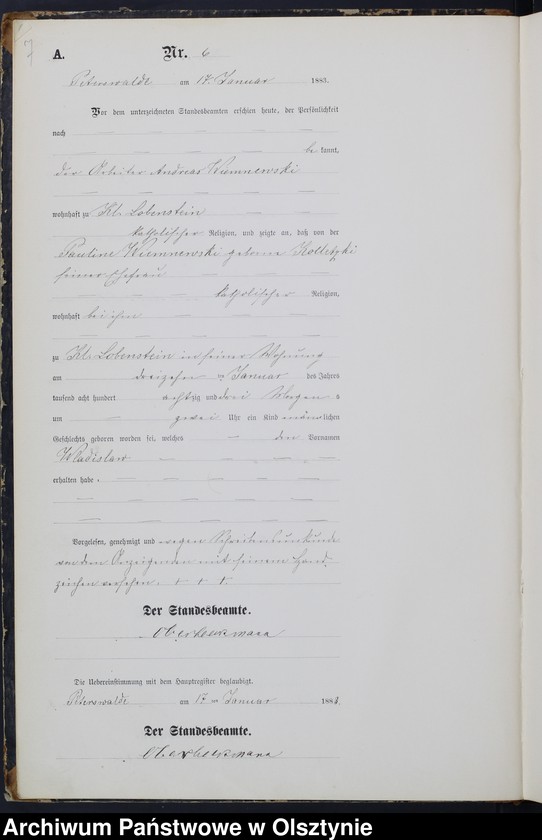 7
A. Nr. 6
Peterswalde am 17. Januar 1883.
Vor dem unterzeichneten Standesbeamten erschien heute, der Persönlichkeit
nach
bekannt,
der Arbeiter Andreas
wohnhaft zu Kl. Lobenstein
katholischer Religion, und zeigte an, daß von der
Pauline geborne
seiner Ehefrau
katholischer Religion,
wohnhaft bei ihm
zu Kl. Lobenstein in seiner Wohnung
am dreizehn ten Januar des Jahres
tausend acht hundert achtzig und drei Morgens
um zwei Uhr ein Kind männlichen
Geschlechts geboren worden sei, welches den Vornamen
Wladislaw
erhalten habe.
Vorgelesen, genehmigt und wegen Schreibensunkunde
von dem Anzeigenden mit seinem Hand-
zeichen versehen. + + +
Der Standesbeamte.
Oberbeckmann
Die Uebereinstimmung mit dem Hauptregister beglaubigt.
Peterswalde am 17 ten Januar 1883.
Der Standesbeamte.
Oberbeckmann
Archiwum Państwowe w Olsztynie